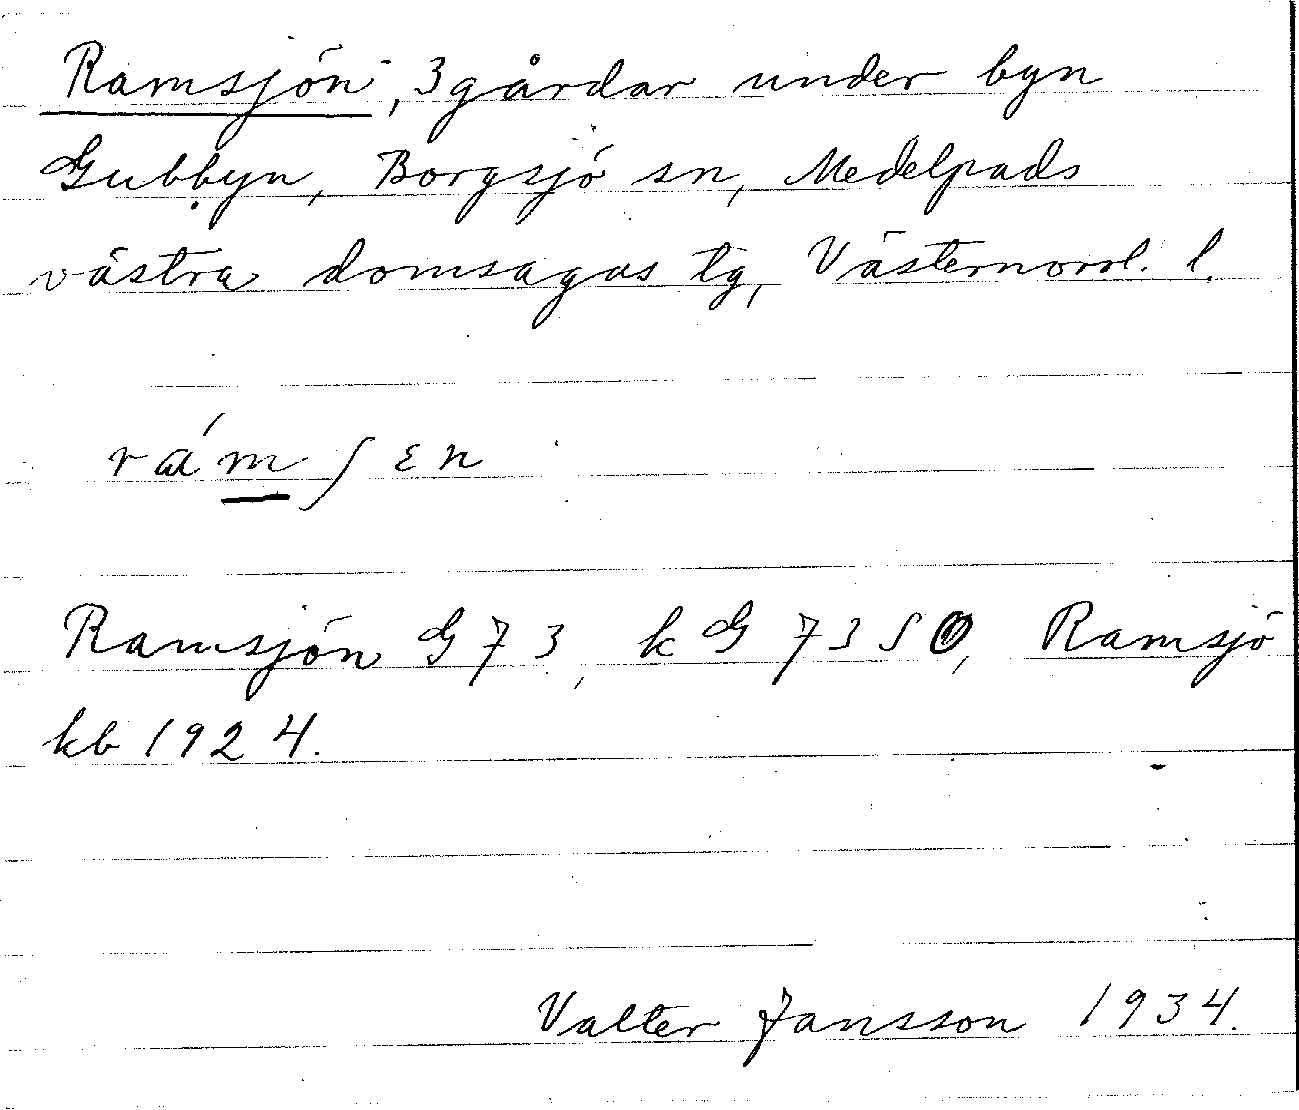 Ramsjön, 3 gårdar under byn
Gubbyn, Borgsjö sn, Medelpads
västra domsagas tg, Västernorrl. l.
rámʃɛn
Ramsjön G 73, k G 7350, Ramsjö
kb 1924.
Valter Jansson 1934.